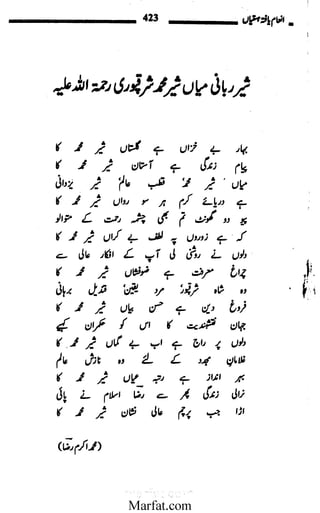 انعام یافتہ ہستیاں
423
شیر ربانی میاں شیر محمد شرقپوری رحمۃ اللہ علیہ
بہار بے خزاں ہے گلستاں شیر محمد کا
پیام زندگی ہے آستاں شیر محمد کا
میاں شیر محمد قطب عالم شیر یزدانی
ہے دریائے کرم ہر سو رواں شیر محمد کا
پیو دو گھونٹ تم بھی چشمہ رحمت کے متوالو
کہ ہے زوروں پہ لطف بے کراں شیر محمد کا
دلوں نے روشنی لی آپ کے افکار عالی سے
چراغ معرفت ہے ضوفشاں شیر محمد کا
وہ شاہ شرقپور مرد یقیں قندیل برہانی
فروغ دین ہے حسن بیاں شیر محمد کا
جہان نقشبندیت کا اس کو حکمران کہیے
دلوں پر راج ہے اب بے گماں شیر محمد کا
غلامان مجدد کے لئے وہ نازش عالم
بہر انداز ہے رتبہ عیاں شیر محمد کا
نرالی زندگی پھر سے رضا اسلام نے پائی
اڑا جب پرچم عالی نشان شیر محمد کا
(محمد اکرم رضا)
Marfat.com